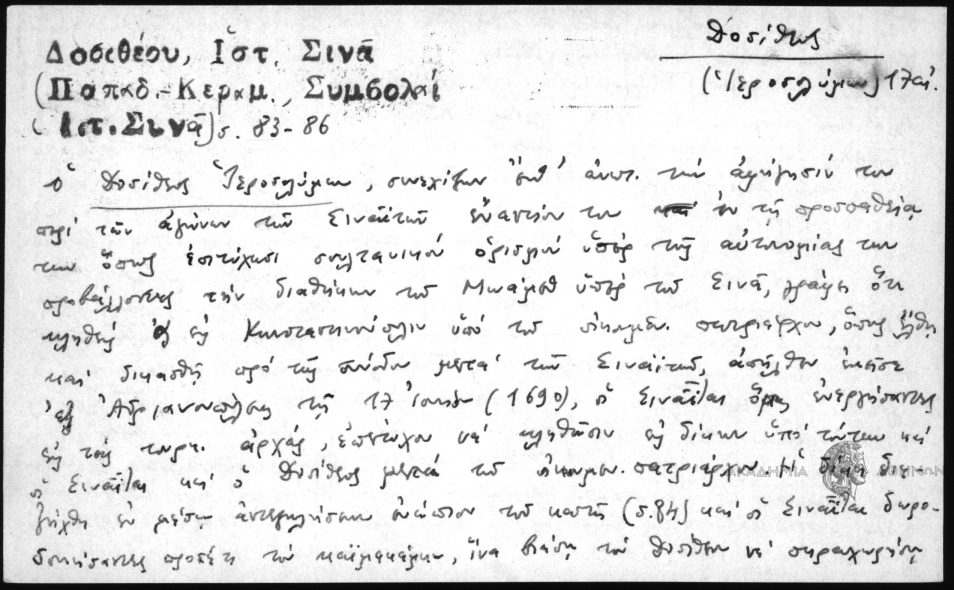 Δοσιθέου, Ἱστ. Σινᾶ
(Παπαδ.-Κεραμ., Συμβολαί
(Ἱστ. Σινᾶ) σ. 83-86
Δοσίθεος
(Ἱεροσολύμων) 17 αἰ.
Ὁ Δοσίθεος Ἱεροσολύμων, συνεχίζων ἀνωτ. τὴν ἀφήγησίν του
περὶ τῶν ἀγώνων τῶν Σιναϊτῶν ἐναντίον του ἐν τῇ προσπαθείᾳ
των ὅπως ἐπιτύχωσι σουλτανικὸν ὁρισμὸν ὑπὲρ τῆς αὐτονομίας των
προβάλλοντες τὴν διαθήκην τοῦ Μωάμεθ ὑπὲρ τοῦ Σινᾶ, γράφει ὅτι
κληθεὶς εἰς Κωνσταντινούπολιν ὑπὸ τοῦ οἰκουμεν. πατριάρχου, ὅπως ἔλθῃ
καὶ δικασθῇ πρὸ τῆς συνόδου μετὰ τῶν Σιναϊτῶν, ἀπῆλθεν ἐκεῖσε
ἐξ Ἀδριανουπόλεως τῇ 17 Ἰουνίου (1690), οἱ Σιναῗται ὅμως ἐνεργήσαντες
εἰς τὰς τουρκ. ἀρχάς, ἐπέτυχον νὰ κληθῶσιν εἰς δίκην ὑπὸ τούτων καὶ
οἱ Σιναῗται καὶ ὁ Δοσίθεος μετὰ τοῦ οἰκουμεν. πατριάρχου. Ἡ δίκη διε-
ξήχθη ἐν μέσῳ ἀντεγκλήσεων ἐνώπιον τοῦ καδῆ (σ. 84) καὶ οἱ Σιναῗται δωρο-
δοκήσαντες προσέτι τὸν καϊμακάμην, ἵνα βιάσῃ τὸν Δοσίθεον νὰ παραχωρήσῃ
ΑΚΑΔΗΜΙΑ ΑΘΗΝΩΝ